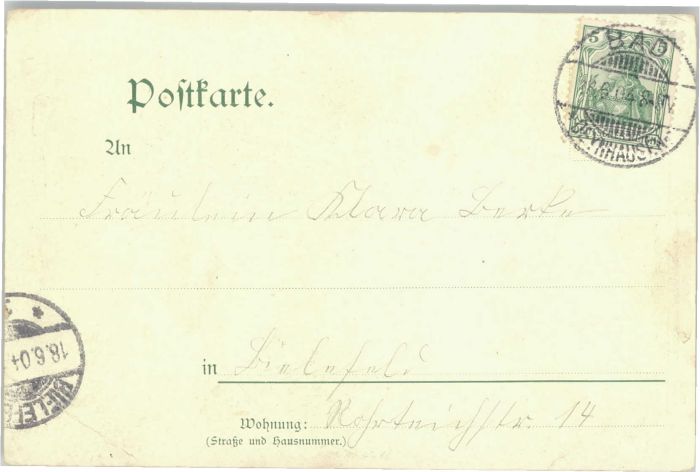 Postkarte.
An
Fräulein Klara Berke
in Bielefeld
Wohnung: Rohrteichstr. 14
(Straße und Hausnummer.)
5
BAD
OEYNHAUSEN
18.6.04
BIELEF